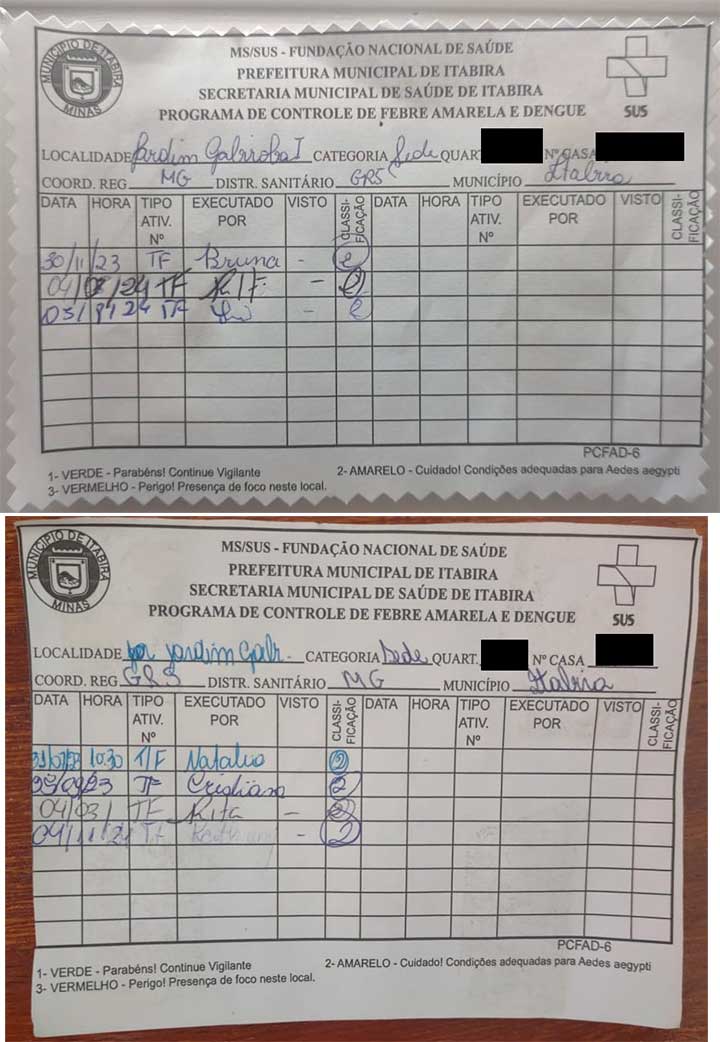 MUNICÍPIO DE ITABIRA
MINAS
MS/SUS - FUNDAÇÃO NACIONAL DE SAÚDE
PREFEITURA MUNICIPAL DE ITABIRA
SECRETARIA MUNICIPAL DE SAÚDE DE ITABIRA
PROGRAMA DE CONTROLE DE FEBRE AMARELA E DENGUE
SUS
LOCALIDADE Jardim Gabiroba I CATEGORIA Sede QUART. Nº CASA
COORD. REG MG DISTR. SANITÁRIO GRS MUNICÍPIO Itabira
DATA HORA TIPO ATIV. Nº EXECUTADO POR VISTO CLASSI-FICAÇÃO DATA HORA TIPO ATIV. Nº EXECUTADO POR VISTO CLASSI-FICAÇÃO
30/11/23 TF Bruna - 2
04/03/24 TF - 2
TF - 2
PCFAD-6
1- VERDE - Parabéns! Continue Vigilante 2- AMARELO - Cuidado! Condições adequadas para Aedes aegypti
3- VERMELHO - Perigo! Presença de foco neste local.
MUNICÍPIO DE ITABIRA
MINAS
MS/SUS - FUNDAÇÃO NACIONAL DE SAÚDE
PREFEITURA MUNICIPAL DE ITABIRA
SECRETARIA MUNICIPAL DE SAÚDE DE ITABIRA
PROGRAMA DE CONTROLE DE FEBRE AMARELA E DENGUE
SUS
LOCALIDADE Jardim Gabi- CATEGORIA Sede QUART. Nº CASA
COORD. REG GRS DISTR. SANITÁRIO MG MUNICÍPIO Itabira
DATA HORA TIPO ATIV. Nº EXECUTADO POR VISTO CLASSI-FICAÇÃO DATA HORA TIPO ATIV. Nº EXECUTADO POR VISTO CLASSI-FICAÇÃO
10:30 T/F 2
TF Cristiana 2
04/03/ TF Rita - 2
04/11/24 TF - 2
PCFAD-6
1- VERDE - Parabéns! Continue Vigilante 2- AMARELO - Cuidado! Condições adequadas para Aedes aegypti
3- VERMELHO - Perigo! Presença de foco neste local.